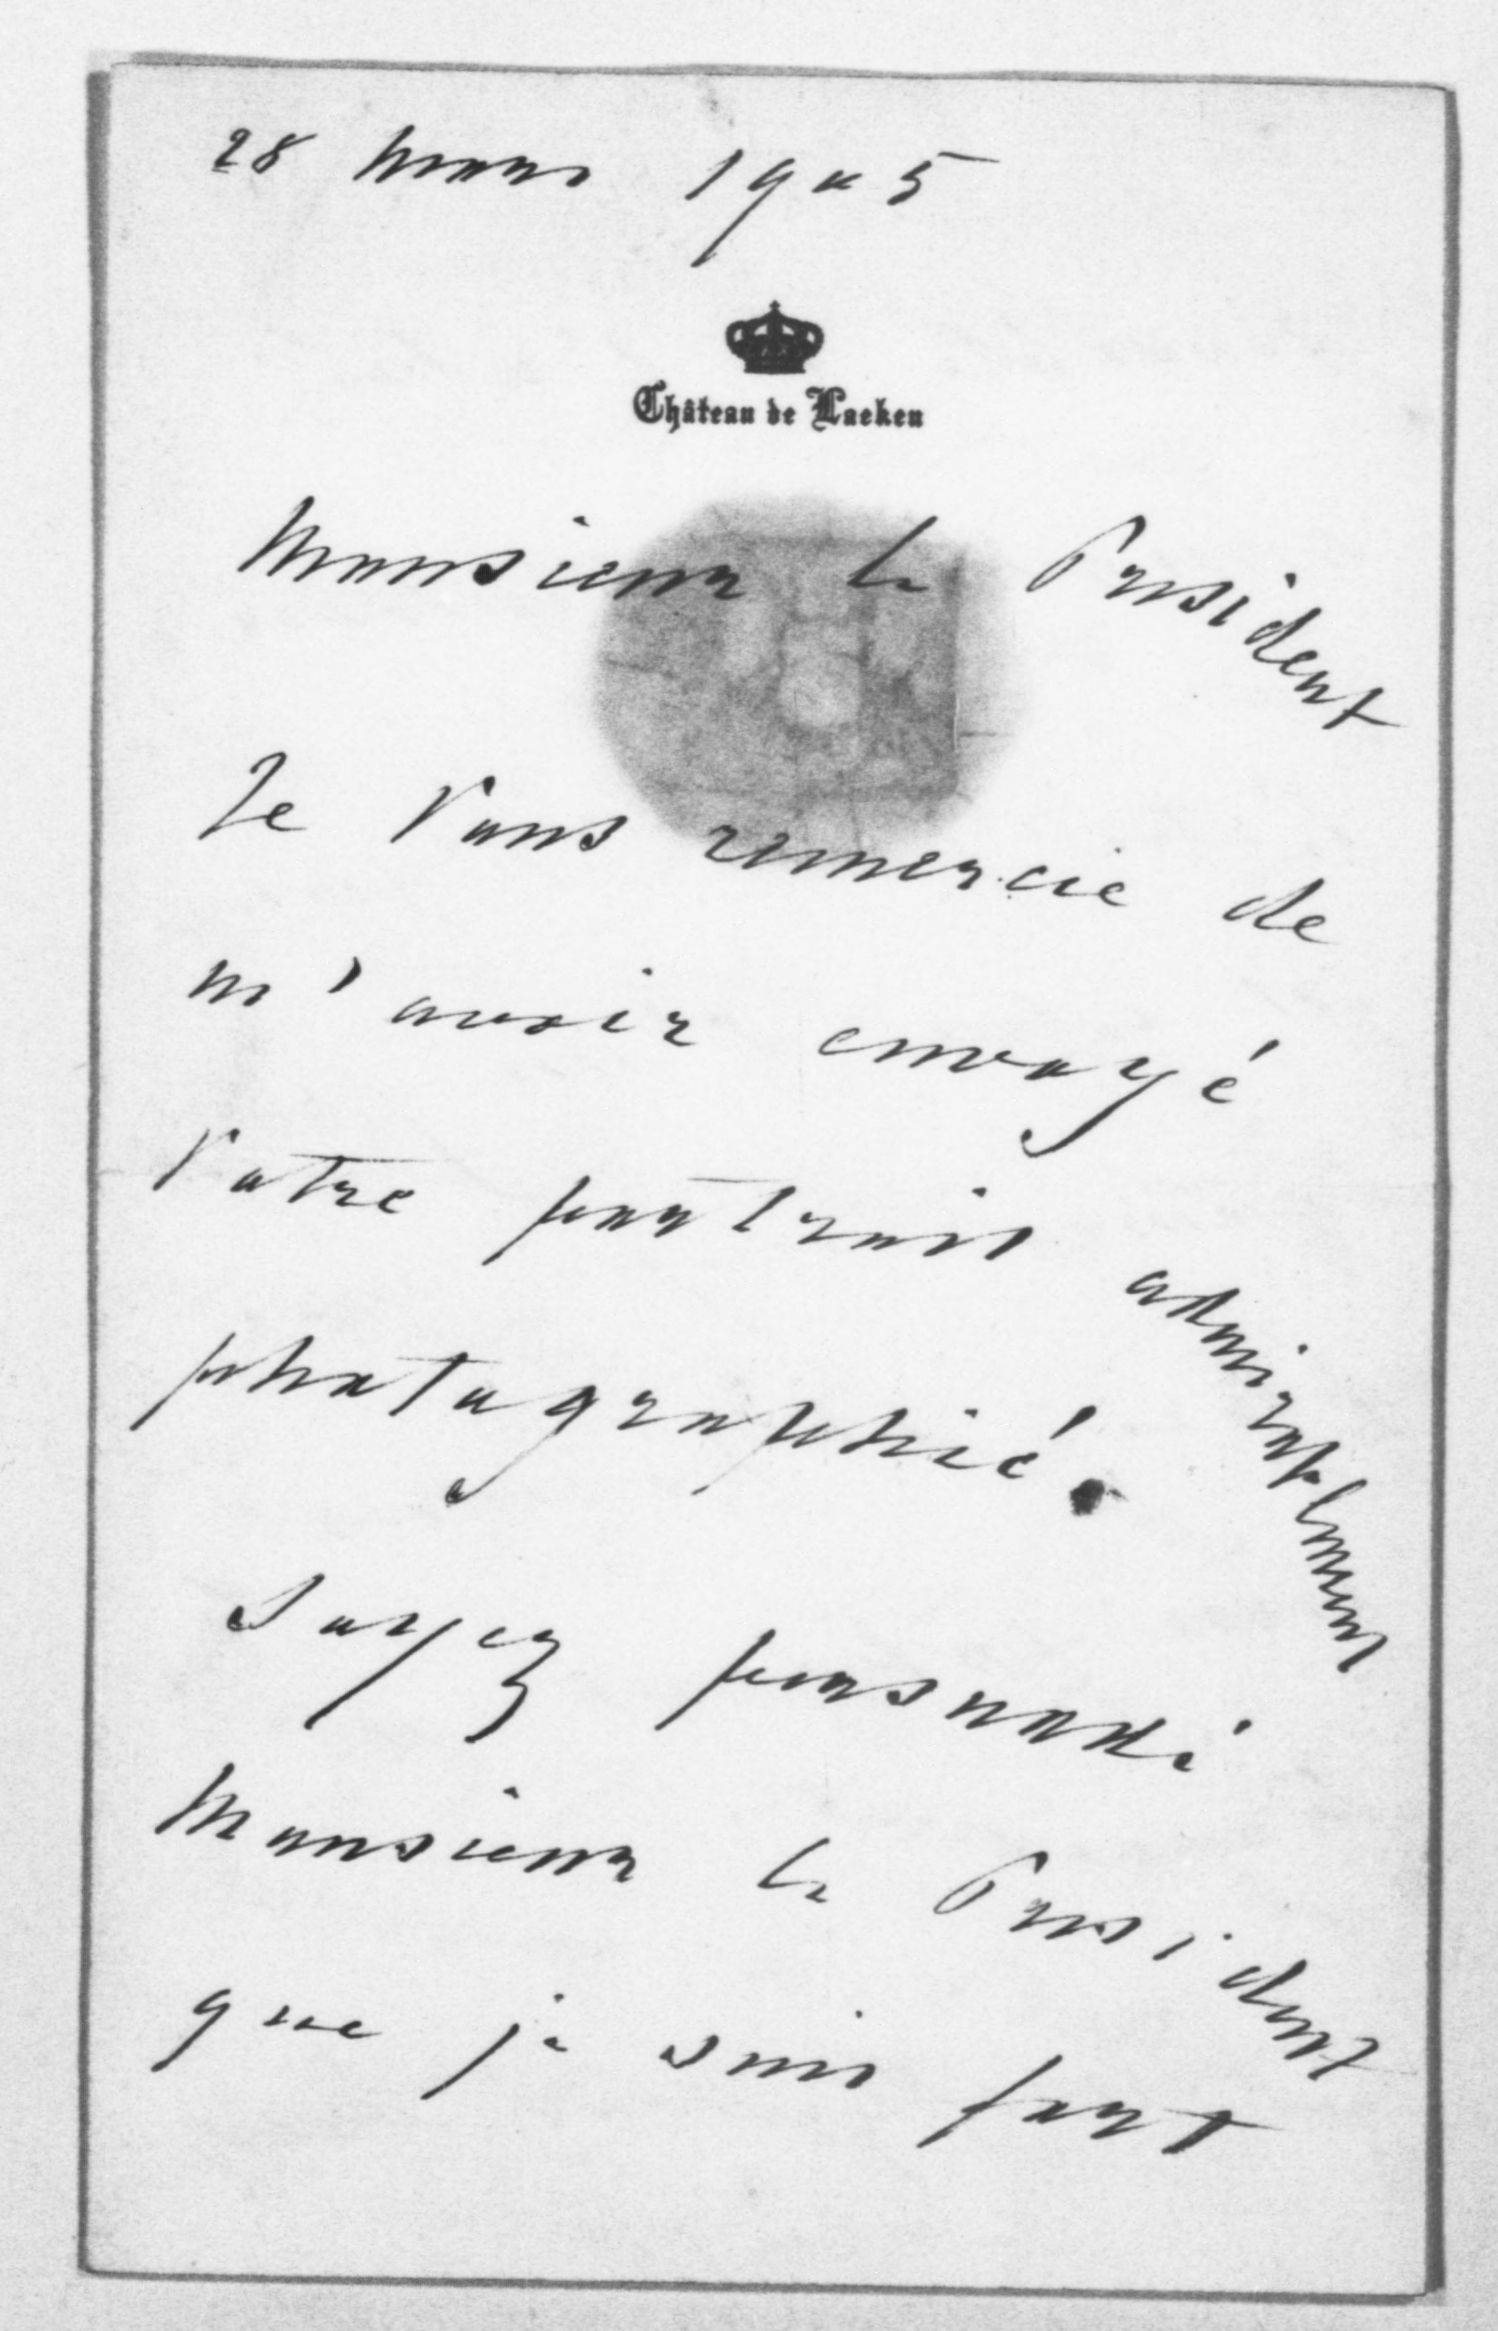 28 mars 1905
Château de Laeken
Monsieur le President
Je Vous remercie de
m'avoir envoyé
Votre portrait admirablement
photographié.
Soyez persuadé
Monsieur le President
que je suis fort